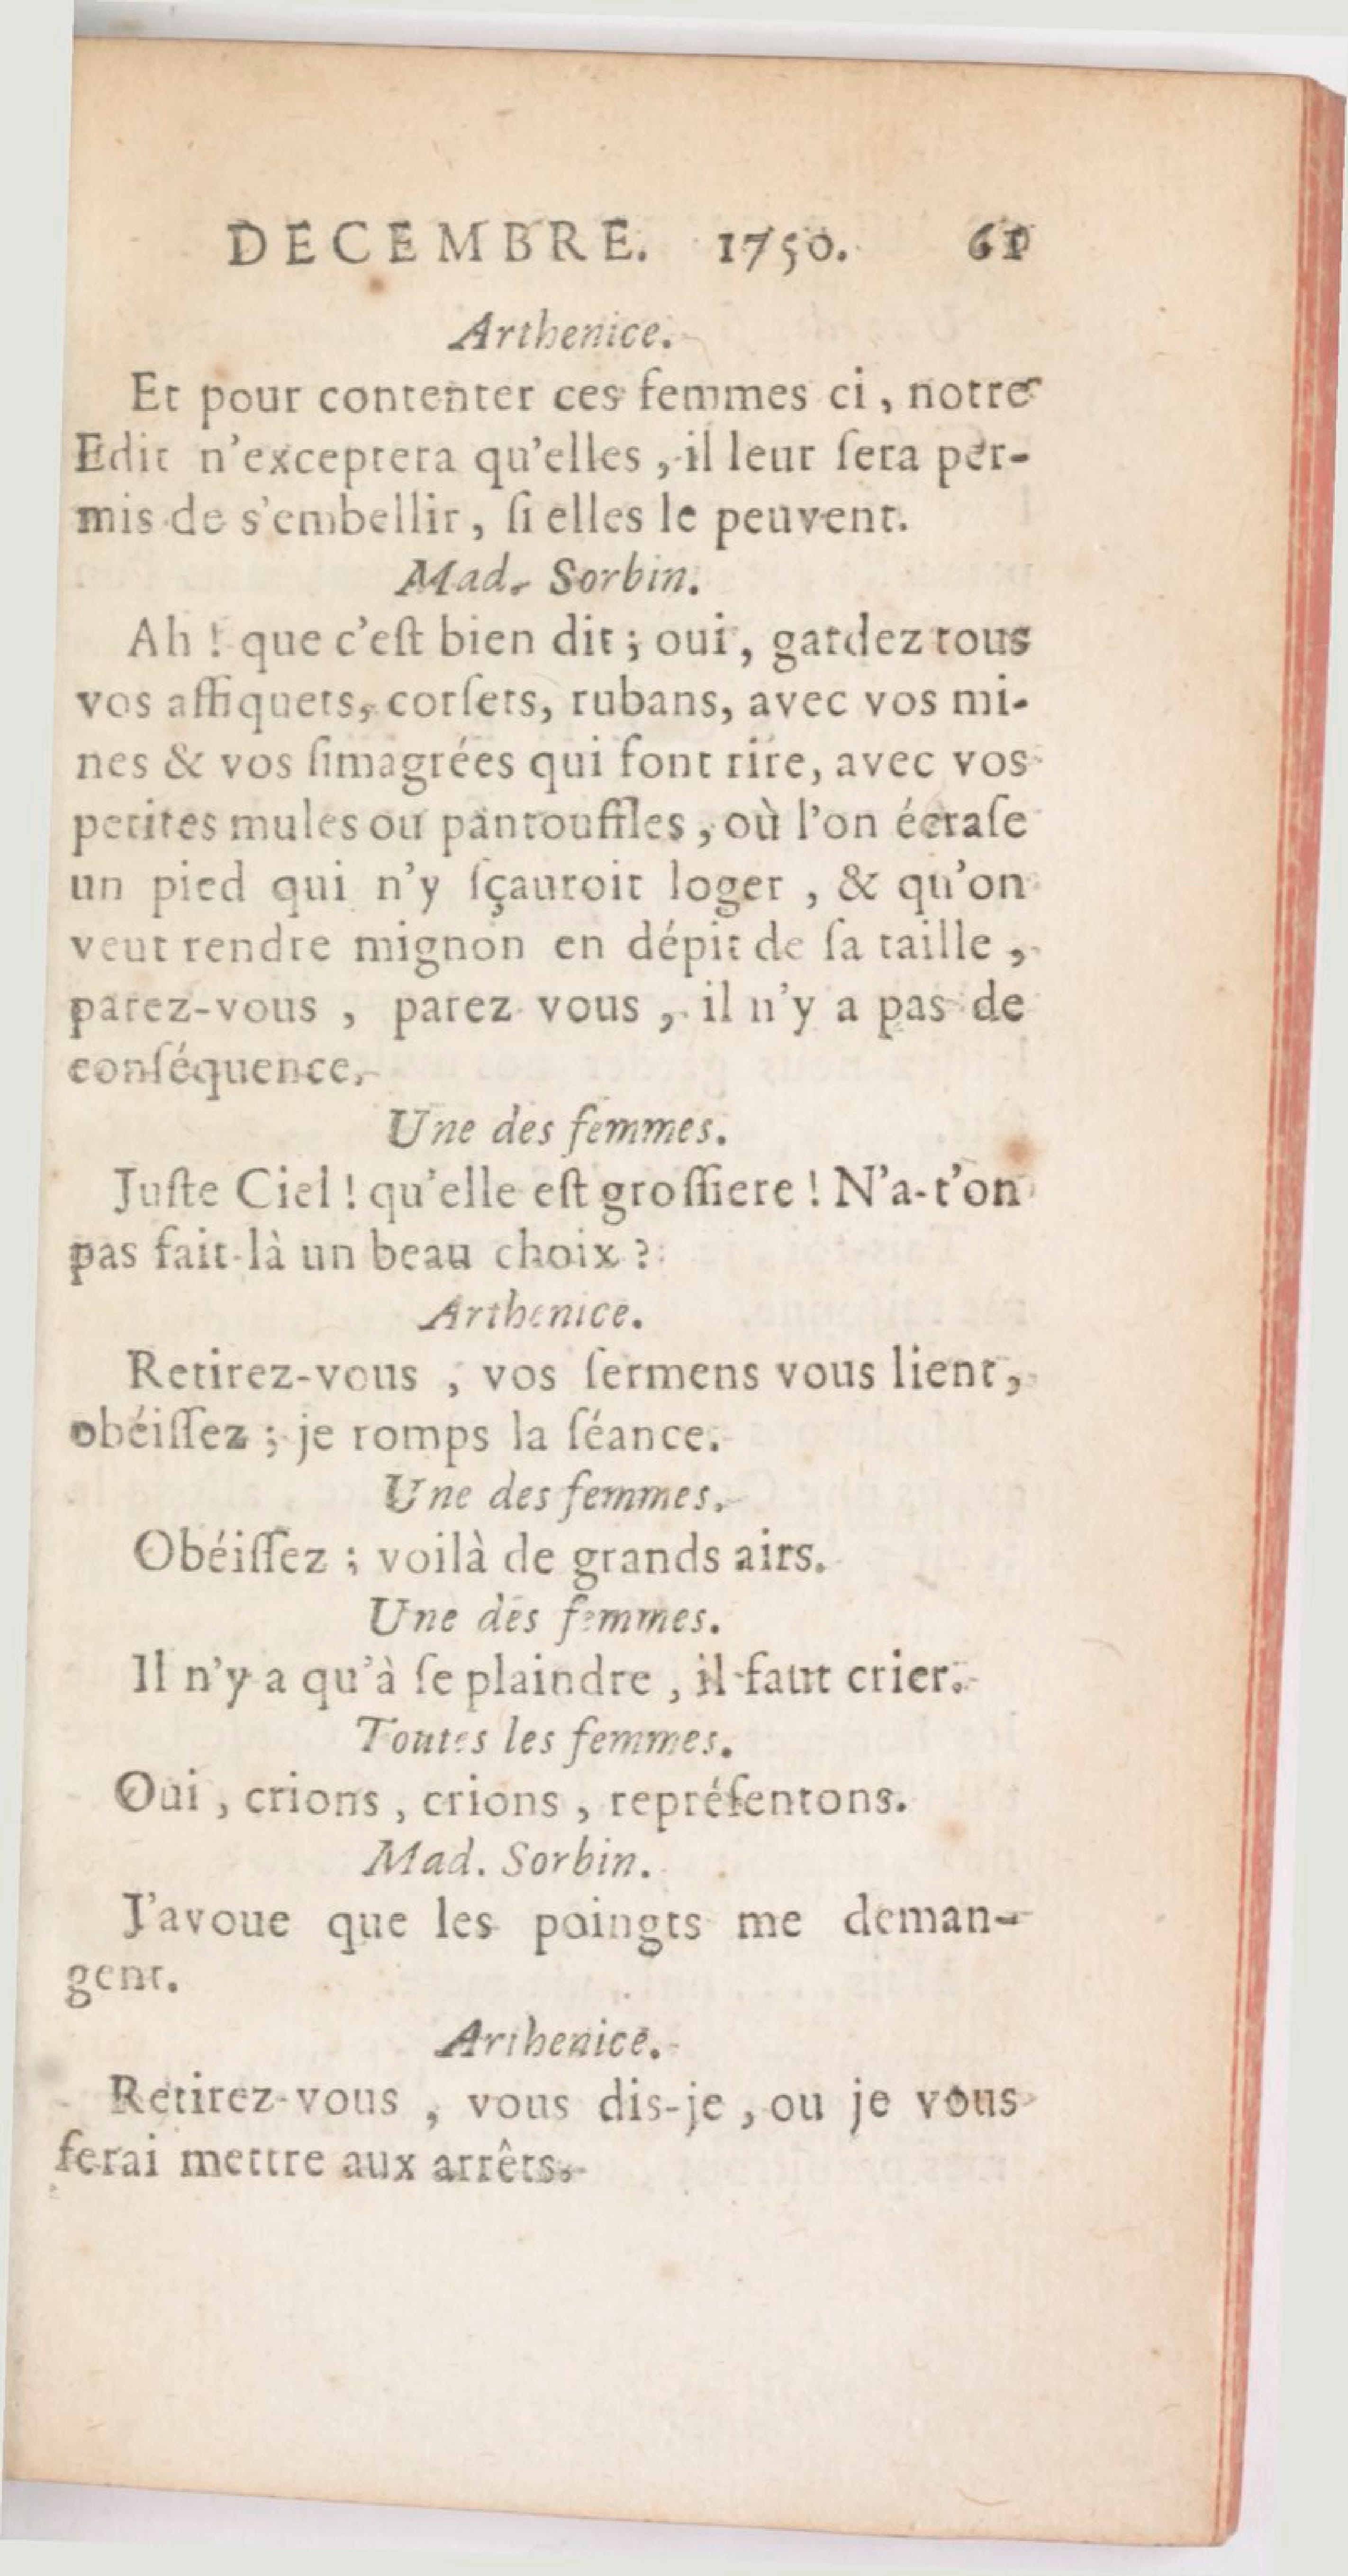 DECEMBRE. 1750. 61
Arthenice.
Et pour contenter ces femmes ci, notre
Edit n'exceptera qu'elles, il leur ſera per-
mis de s'embellir, ſi elles le peuvent.
Mad. Sorbin.
Ah ! que c'eſt bien dit ; oui, gardez tous
vos affiquets, corſets, rubans, avec vos mi-
nes & vos ſimagrées qui font rire, avec vos
petites mules ou pantouffles, où l'on écraſe
un pied qui n'y ſçauroit loger, & qu'on
veut rendre mignon en dépit de ſa taille,
parez-vous, parez vous, il n'y a pas de
conſéquence.
Une des femmes.
Juſte Ciel ! qu'elle eſt groſſiere ! N'a-t'on
pas fait-là un beau choix ?
Arthenice.
Retirez-vous, vos ſermens vous lient,
obéiſſez ; je romps la ſéance.
Une des femmes.
Obéiſſez ; voilà de grands airs.
Une des femmes.
Il n'y a qu'à ſe plaindre, il faut crier.
Toutes les femmes.
Oui, crions, crions, repréſentons.
Mad. Sorbin.
J'avoue que les poingts me deman-
gent.
Arthenice.
Retirez-vous, vous dis-je, ou je vous
ferai mettre aux arrêts.